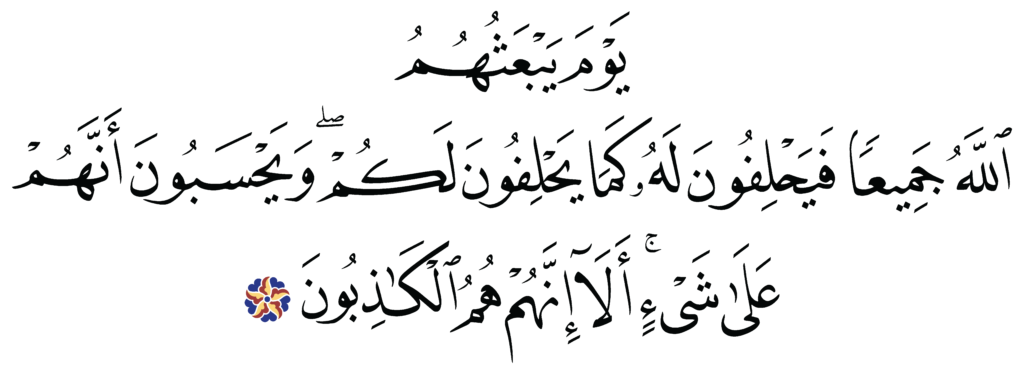 يَوْمَ يَبْعَثُهُمُ
ٱللَّهُ جَمِيعًا فَيَحْلِفُونَ لَهُۥ كَمَا يَحْلِفُونَ لَكُمْ ۖ وَيَحْسَبُونَ أَنَّهُمْ
عَلَىٰ شَىْءٍ ۚ أَلَآ إِنَّهُمْ هُمُ ٱلْكَـٰذِبُونَ